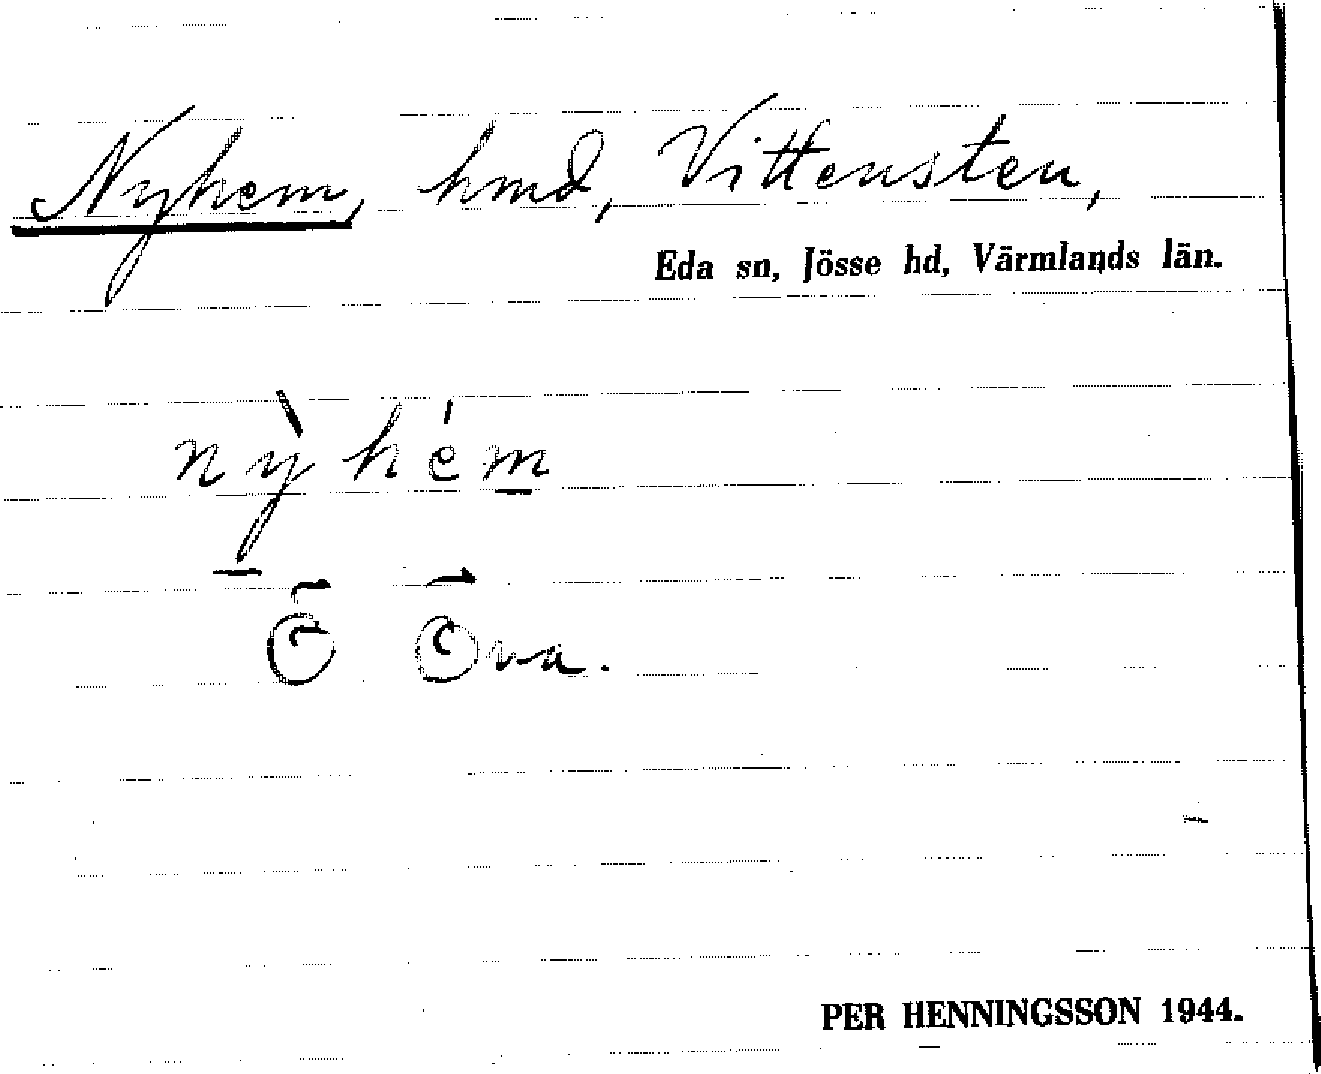 Nyhem, hmd, Vittensten,
Eda sn, Jösse hd, Värmlands län.
nỳhém
PER HENNINGSSON 1944.